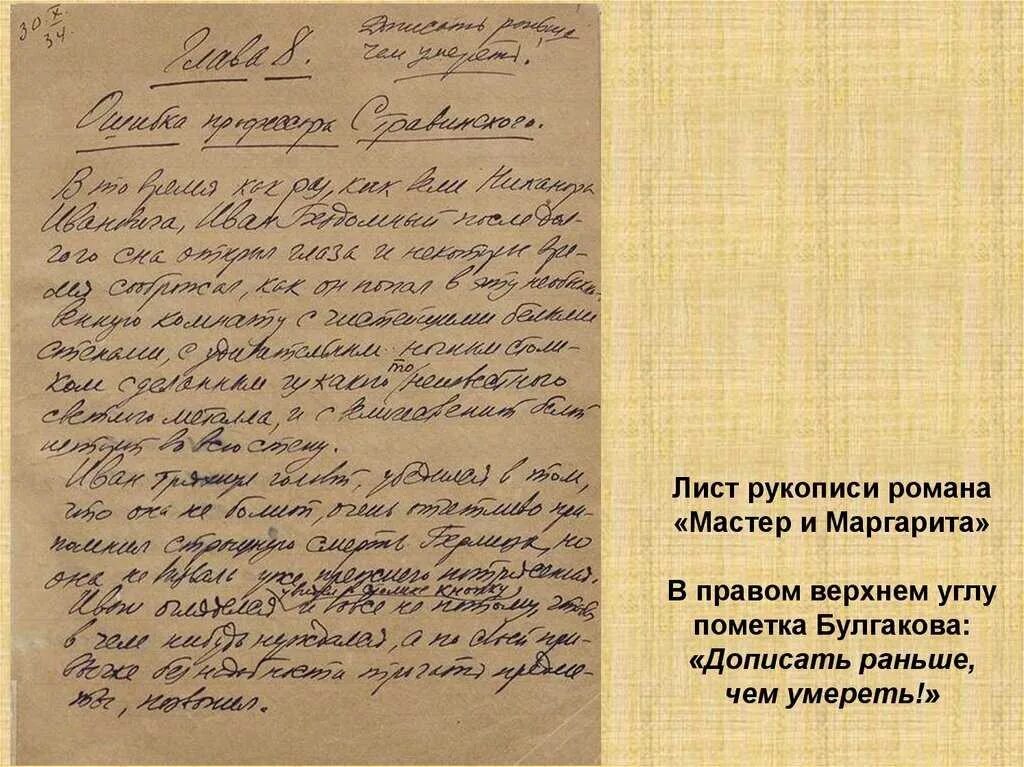 30.X.
34.
Дописать раньше,
чем умереть!
Глава 8.
Ошибка профессора Стравинского.
В то время как раз, как вели Никанора
Ивановича, Иван Бездомный после дол-
гого сна открыл глаза и некоторое вре-
мя соображал, как он попал в эту необык-
венную комнату с чистейшими белыми
стенами, с удивительным ночным столи-
ком сделанным из какого то неизвестного
светлого металла, и с величественной белой
шторой во всю стену.
Иван тряхнул головой, убедился в том,
что она не болит, очень отчетливо при-
помнил страшную смерть Берлиоза, но
она не вызвала уже прежнего потрясения.
Иван огляделся, увидел в столике кнопку, и вовсе не потому, чтобы
в чем нибудь нуждался, а по своей при-
вычке без надобности трогать предме-
ты, позвонил.
Лист рукописи романа
«Мастер и Маргарита»
В правом верхнем углу
пометка Булгакова:
«Дописать раньше,
чем умереть!»